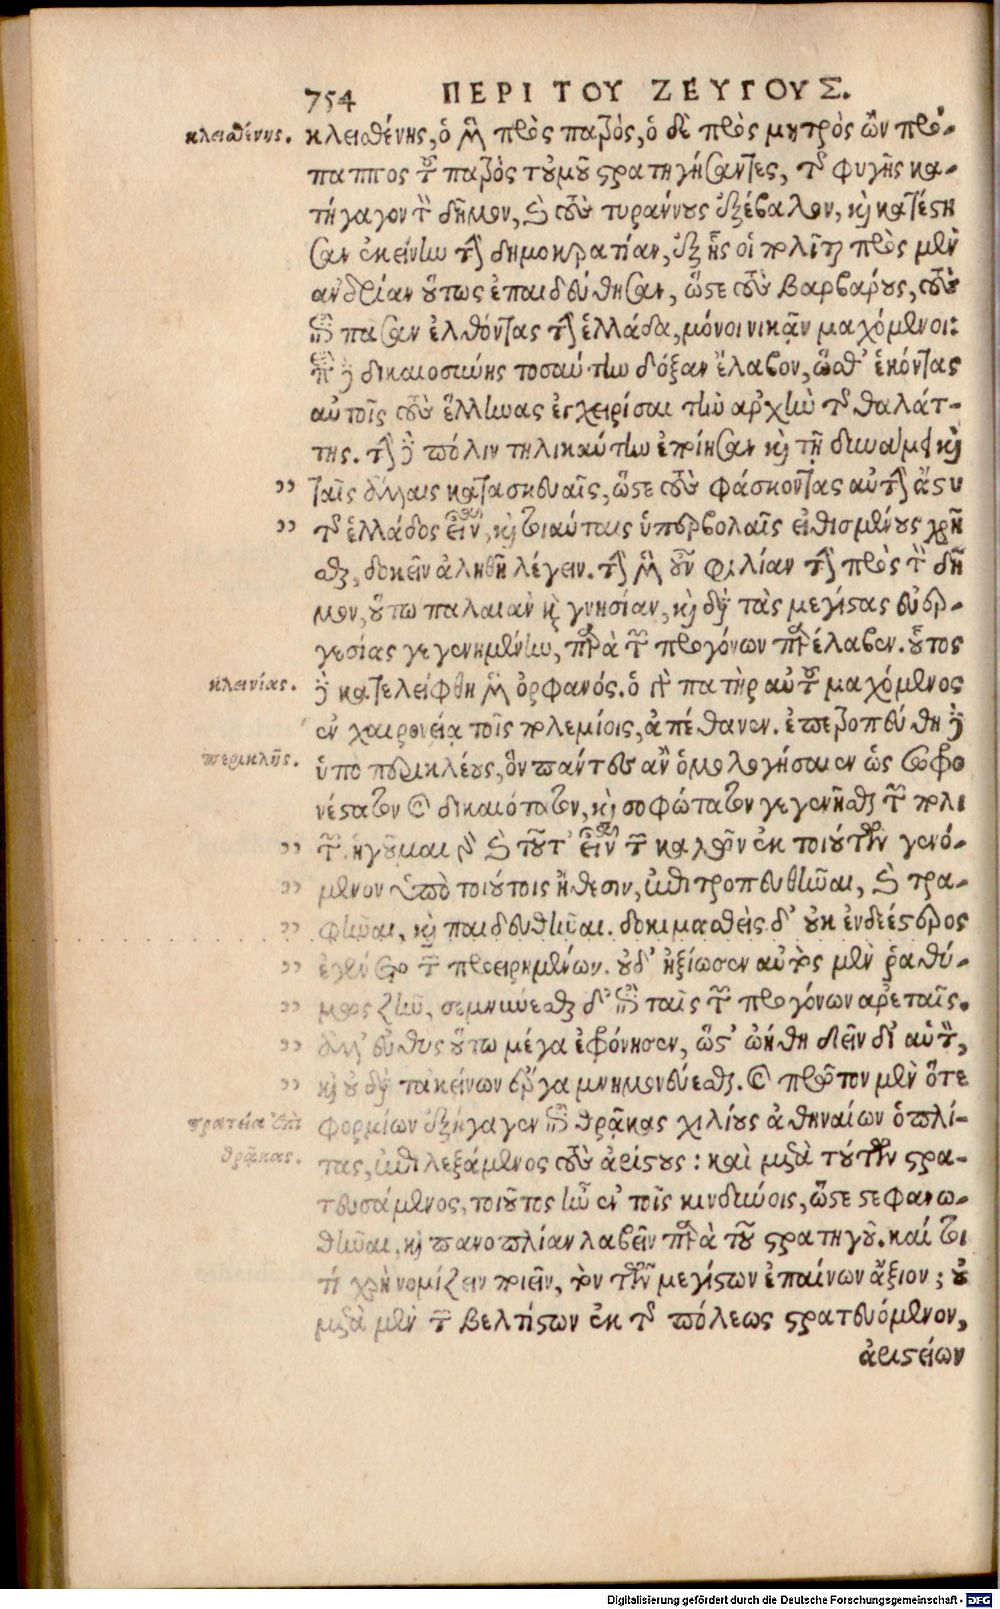 754 ΠΕΡΙ ΤΟΥ ΖΕΥΓΟΥΣ.
κλεισθένης. κλεισθένης, ὁ μὲν πρὸς πατρὸς, ὁ δὲ πρὸς μητρὸς ὢν πρό-
παππος τοῦ πατρὸς τοὐμοῦ στρατηγήσαντες, τῆς φυγῆς κα-
τήγαγον τὸν δῆμον, καὶ τοὺς τυράννους ἐξέβαλον, καὶ κατέστη
σαν ἐκείνην τὴν δημοκρατίαν, ἐξ ἧς οἱ πολῖται πρὸς μὲν
ἀνδρίαν οὕτως ἐπαιδεύθησαν, ὥστε τοὺς βαρβάρους, τοὺς
ἐπὶ πᾶσαν ἐλθόντας τὴν ἑλλάδα, μόνοι νικᾷν μαχόμενοι:
περὶ δὲ δικαιοσύνης τοσαύτην δόξαν ἔλαβον, ὥσθ' ἑκόντας
αὐτοῖς τοὺς ἕλληνας ἐγχειρίσαι τὴν ἀρχὴν τῆς θαλάτ-
της. τὴν δὲ πόλιν τηλικαύτην ἐποίησαν καὶ τῇ δυνάμει καὶ
ταῖς ἄλλαις κατασκευαῖς, ὥστε τοὺς φάσκοντας αὐτὴν ἄστυ
τῆς ἑλλάδος εἶναι, καὶ τοιαύταις ὑπερβολαῖς εἰθισμένους χρῆ
σθαι, δοκεῖν ἀληθῆ λέγειν. τὴν μὲν οὖν φιλίαν τὴν πρὸς τὸν δῆ
μον, οὕτω παλαιὰν καὶ γνησίαν, καὶ διὰ τὰς μεγίστας εὐερ-
γεσίας γεγενημένην, παρὰ τῶν προγόνων παρέλαβεν. οὗτος
κλεινίας. δὲ κατελείφθη μὲν ὀρφανός. ὁ γὰρ πατὴρ αὐτοῦ μαχόμενος
ἐν χαιρωνείᾳ τοῖς πολεμίοις, ἀπέθανεν. ἐπετροπεύθη δὲ
περικλῆς. ὑπὸ περικλέους, ὃν πάντες ἂν ὁμολογήσαιεν ὡς σωφρο
νέστατον καὶ δικαιότατον, καὶ σοφώτατον γεγενῆσθαι τῶν πολι
τῶν. ἡγοῦμαι γὰρ καὶ τοῦτ' εἶναι τῶν καλῶν ἐκ τοιούτων γενό-
μενον ὑπὸ τοιούτοις ἤθεσιν, ἐπιτροπευθῆναι, καὶ τρα-
φῆναι, καὶ παιδευθῆναι. δοκιμασθεὶς δ' οὐκ ἐνδεέστερος
ἐγένετο τῶν προειρημένων. οὐδ' ἠξίωσεν αὐτὸς μὲν ῥαθύ-
μως ζῆν, σεμνύνεσθαι δ' ἐπὶ ταῖς τῶν προγόνων ἀρεταῖς.
ἀλλ' εὐθὺς οὕτω μέγα ἐφρόνησεν, ὥστ' ᾠήθη δεῖν δι' αὑτὸν,
καὶ διὰ τἀκείνων ἔργα μνημονεύεσθαι. καὶ πρῶτον μὲν ὅτε
στρατεία ἐπὶ φορμίων ἐξήγαγεν ἐπὶ θρᾴκας χιλίους ἀθηναίων ὁπλί-
θρᾴκας. τας, ἐπιλεξάμενος τοὺς ἀρίστους: καὶ μετὰ τούτων στρα-
τευσάμενος, τοιοῦτος ἦν ἐν τοῖς κινδύνοις, ὥστε στεφανω-
θῆναι, καὶ πανοπλίαν λαβεῖν παρὰ τοῦ στρατηγοῦ. καίτοι
τί χρὴ νομίζειν ποιεῖν, τὸν τῶν μεγίστων ἐπαίνων ἄξιον; οὐ
μετὰ μὲν τῶν βελτίστων ἐκ τῆς πόλεως στρατευόμενον,
ἀριστείων
Digitalisierung gefördert durch die Deutsche Forschungsgemeinschaft - DFG